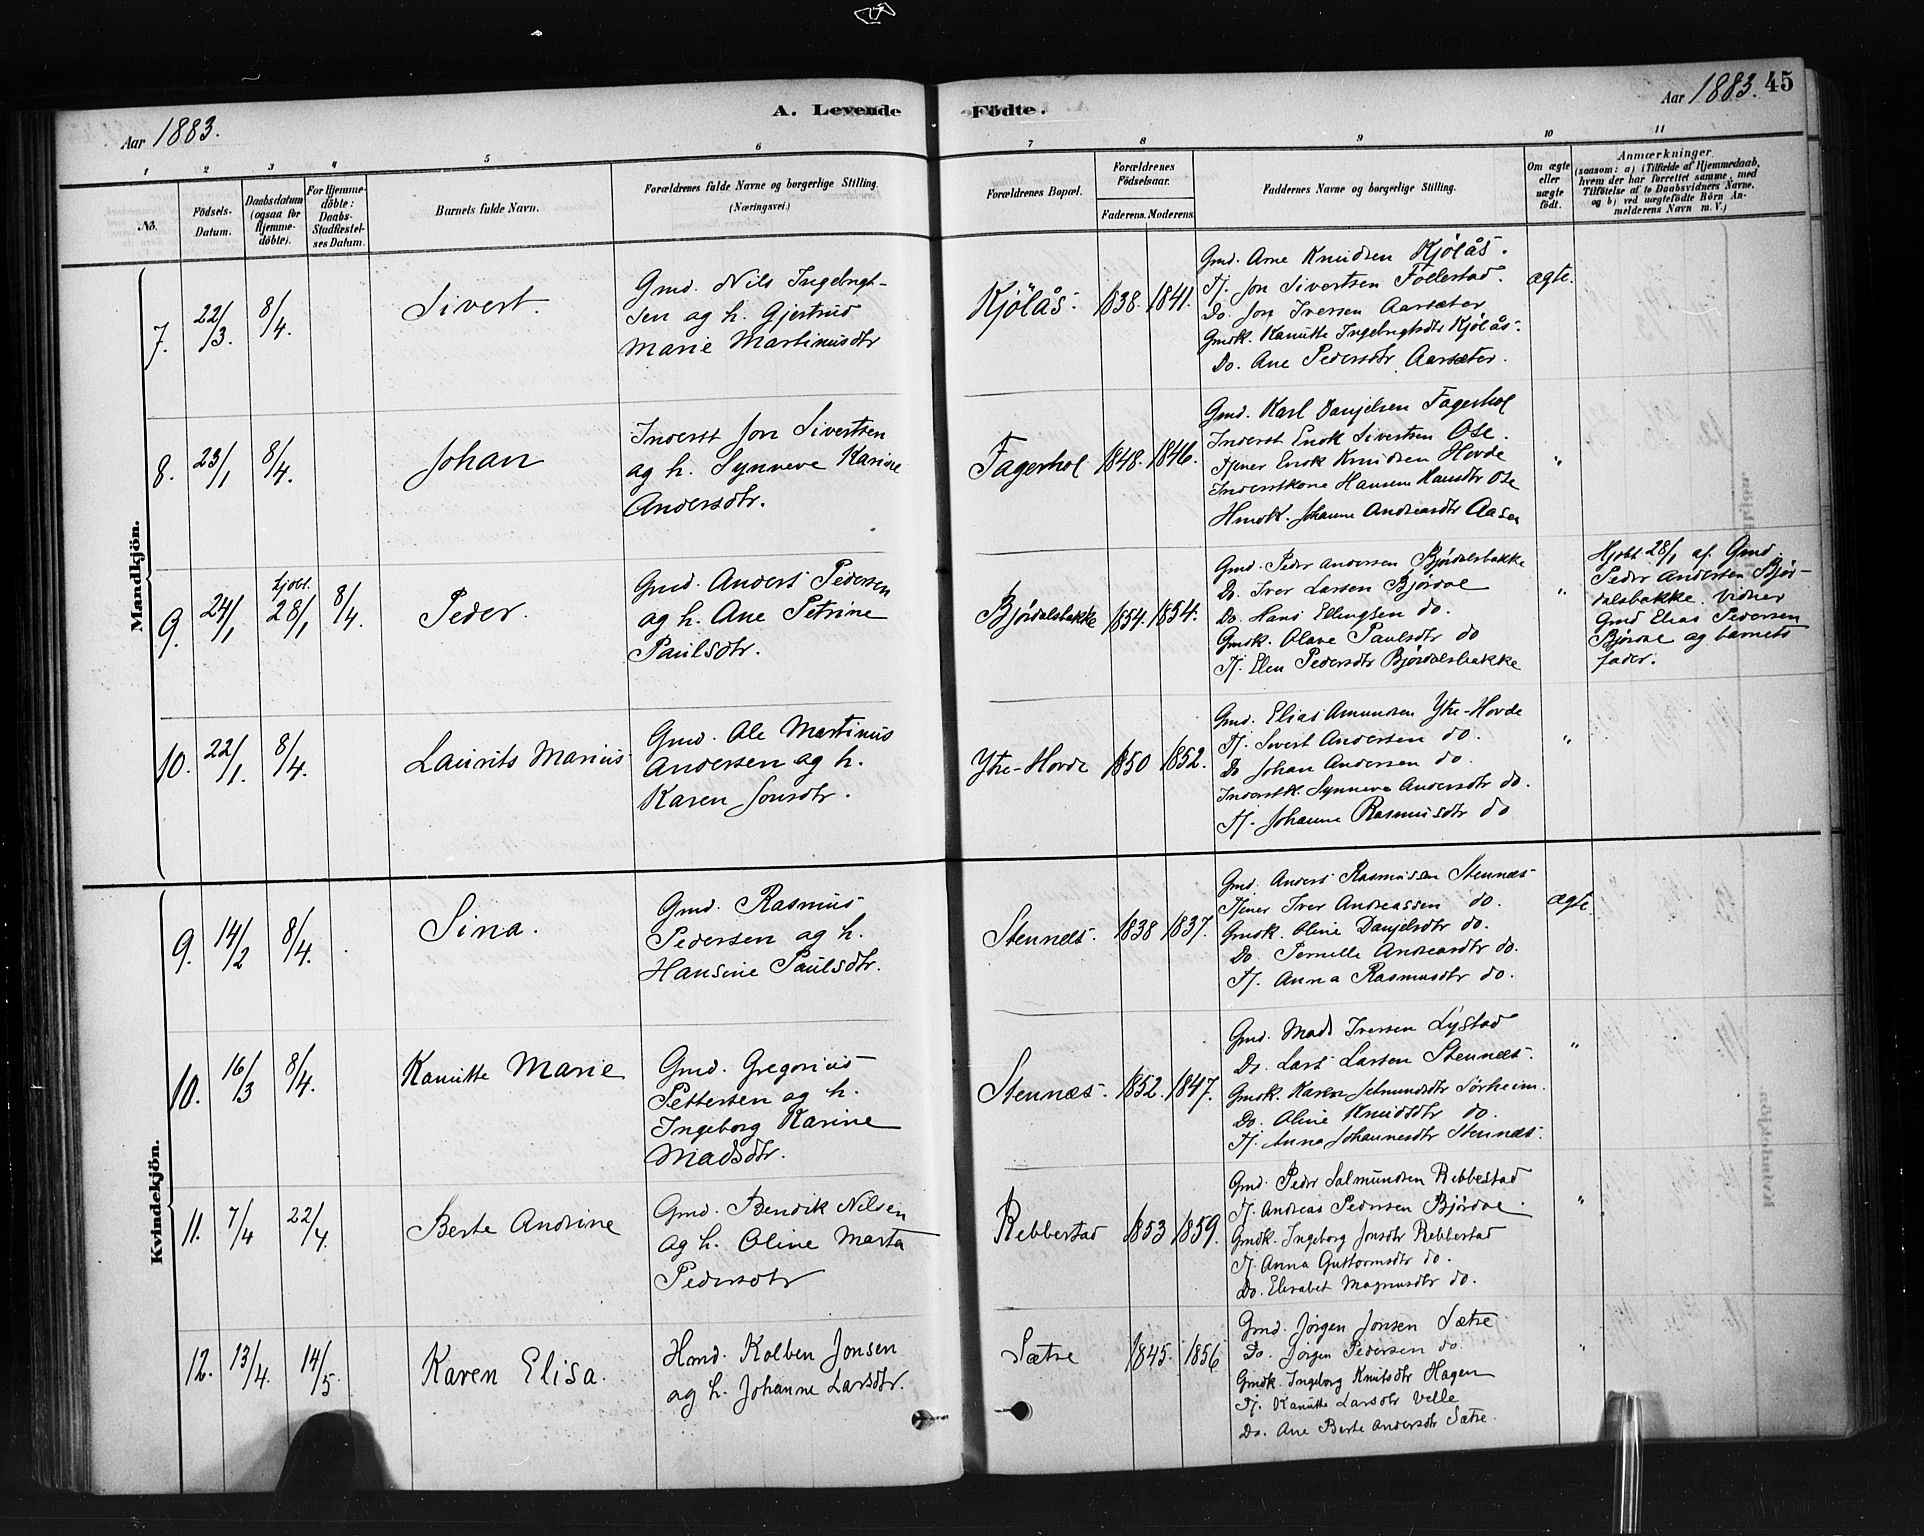 Aar 1883.
A. Levende Födte.
Aar 1883. 45
1 2 3 4 5 6 7 8 9 10 11
No.
Födsels-Datum.
Daabsdatum (ogsaa for Hjemme-döbte).
For Hjemme-döbte: Daabs-Stadfæstel-ses Datum.
Barnets fulde Navn.
Forældrenes fulde Navne og borgerlige Stilling. (Næringsvei.)
Forældrenes Bopæl.
Forældrenes Födselsaar.
Faderens. Moderens.
Faddernes Navne og borgerlige Stilling.
Om ægte eller uægte födt.
Anmærkninger.
(saasom: a) i Tilfælde af Hjemmedaab,
hvem der har forrettet samme, med
Tilföielse af to Daabsvidners Navne.
og b) ved uægtefödte Börn An-
melderens Navn m. V.)
Mandkjön.
7. 22/3. 8/4. Sivert.
Gmd. Nils Ingebrigt-
sen og h. Gjertrud
Marie Martinusdtr
Kjölås. 1838. 1841.
Gmd. Arne Knudsen Kjölås.
Tj. Jon Sivertsen Follestad.
Do. Jon Iversen Aarsæter
Gmdk. Kanutte Ingebrigtsdtr Kjölås.
Do. Ane Pedersdtr Aarsæter.
ægte.
8. 23/1 8/4. Johan
Inderst Jon Sivertsen
og h. Synneve Karine
Andersdtr.
Fagerhol 1848. 1846.
Gmd. Karl Danjelsen Fagerhol
Inderst Enok Sivertsen Ose.
Tjener Enok Knudsen Hovde
Inderstkone Hansine Hansdtr Ose
Hmdk. Johanne Andreasdtr Aasen
"
9. 24/1 hjdbt. 28/1 8/4. Peder.
Gmd. Anders Pedersen
og h. Ane Petrine
Paulsdtr.
Bjørdalsbakke 1854. 1854.
Gmd. Peder Andersen Bjørdalsbakke
Do. Iver Larsen Bjørdal
Do. Hans Ellingsen do.
Gmdk. Olave Paulsdtr do
Tj. Elen Pedersdtr Bjørdalsbakke
"
Hjdbt 28/1 af Gmd.
Peder Andersen Bjør-
dalsbakke. Vidner
Gmd Elias Pedersen
Bjørdal og barnets
fader.
10. 22/1. 8/4. Laurits Marius
Gmd. Ole Martinus
Andersen og h.
Karen Jonsdtr.
Ytre-Hovde 1850 1852.
Gmd. Elias Amundsen Ytre-Hovde
Tj. Sivert Andersen do.
Do Johan Andersen do.
Inderstk. Synneva Andersdtr do.
Tj. Johanne Rasmusdtr do
"
Kvindekjön.
9. 14/2 8/4. Sina.
Gmd. Rasmus
Pedersen og h.
Hansine Paulsdtr.
Stennes. 1838 1837.
Gmd. Anders Rasmussen Stennæs
Tjener Iver Andreassen do.
Gmdk. Oline Danjelsdtr do.
Do. Pernille Andreasdtr do.
Tj. Anna Rasmusdtr do.
ægte.
10. 16/3 8/4. Kanutte Marie
Gmd. Gregorius
Pettersen og h.
Ingeborg Karine
Madsdtr.
Stennæs. 1852. 1847.
Gmd. Mads Iversen Lystad
Do. Lars Larsen Stennæs.
Gmdk. Karen Salmundsdtr Sørheim.
Do. Oline Knudsdtr do.
Tj. Anna Johannesdtr Stennæs.
"
11. 7/4 22/4. Berte Andrine
Gmd. Bendik Nilsen
og h. Oline Marta
Pedersdtr
Rebbestad 1853 1859.
Gmd. Peder Salmundsen Rebbestad
Tj. Andreas Pedersen Bjørdal.
Gmdk. Ingeborg Jonsdtr Rebbestad
Tj. Anna Guttormsdtr do.
Do. Elisabet Magnusdtr do.
"
12. 13/4. 14/5. Karen Elisa.
Hmd. Kolben Jonsen
og h. Johanne Larsdtr.
Sætre 1845. 1856
Gmd. Jørgen Jonsen Sætre
Do. Jørgen Pedersen do
Gmdk. Ingeborg Knutsdtr Hagen
Tj. Kanutte Larsdtr Velle
Do. Ane Berte Andersdtr Sætre.
"